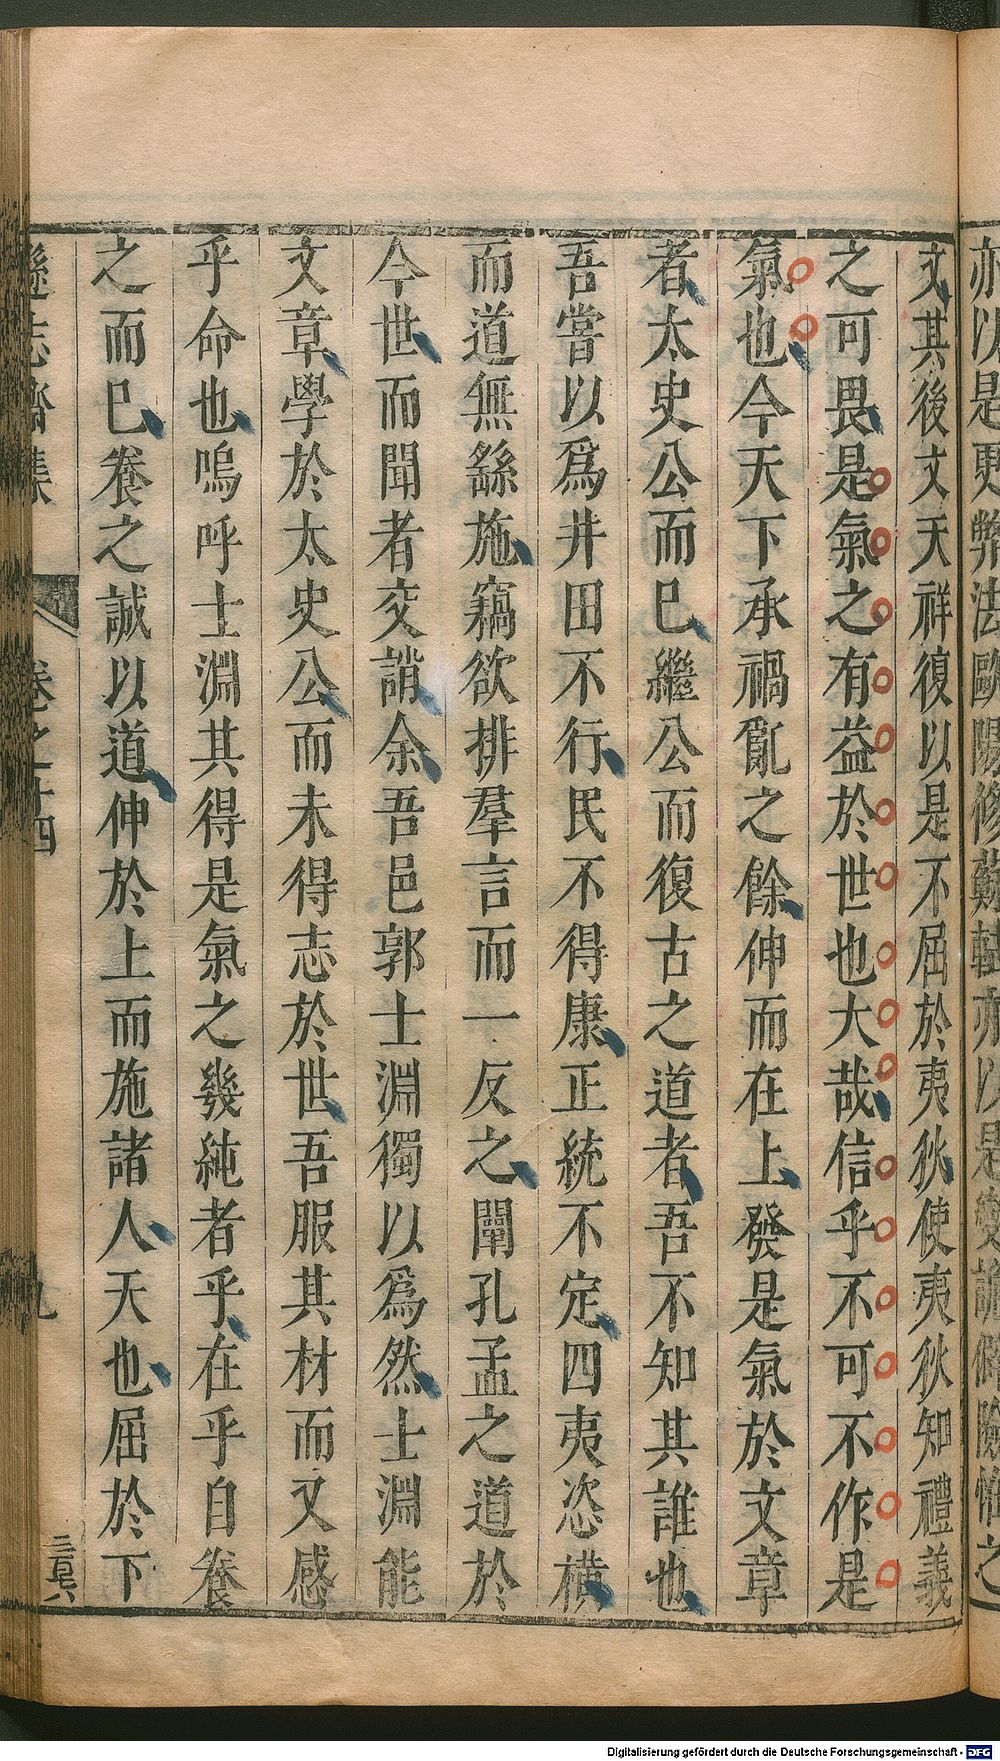 亦以是更弊法歐陽修蘇軾亦以是變詭僻險怪之
文其後文天祥復以是不屈於夷狄使夷狄知禮義
之可畏是氣之有益於世也大哉信乎不可不作是
氣也今天下承禍亂之餘伸而在上發是氣於文章
者太史公而已繼公而復古之道者吾不知其誰也
吾嘗以爲井田不行民不得康正統不定四夷恣橫
而道無繇施竊欲排羣言而一反之闡孔孟之道於
今世而聞者交誚余吾邑郭士淵獨以爲然士淵能
文章學於太史公而未得志於世吾服其材而又感
乎命也嗚呼士淵其得是氣之幾純者乎在乎自養
之而已養之誠以道伸於上而施諸人天也屈於下
遜志齋集 卷之十四 九
Digitalisierung gefördert durch die Deutsche Forschungsgemeinschaft - DFG